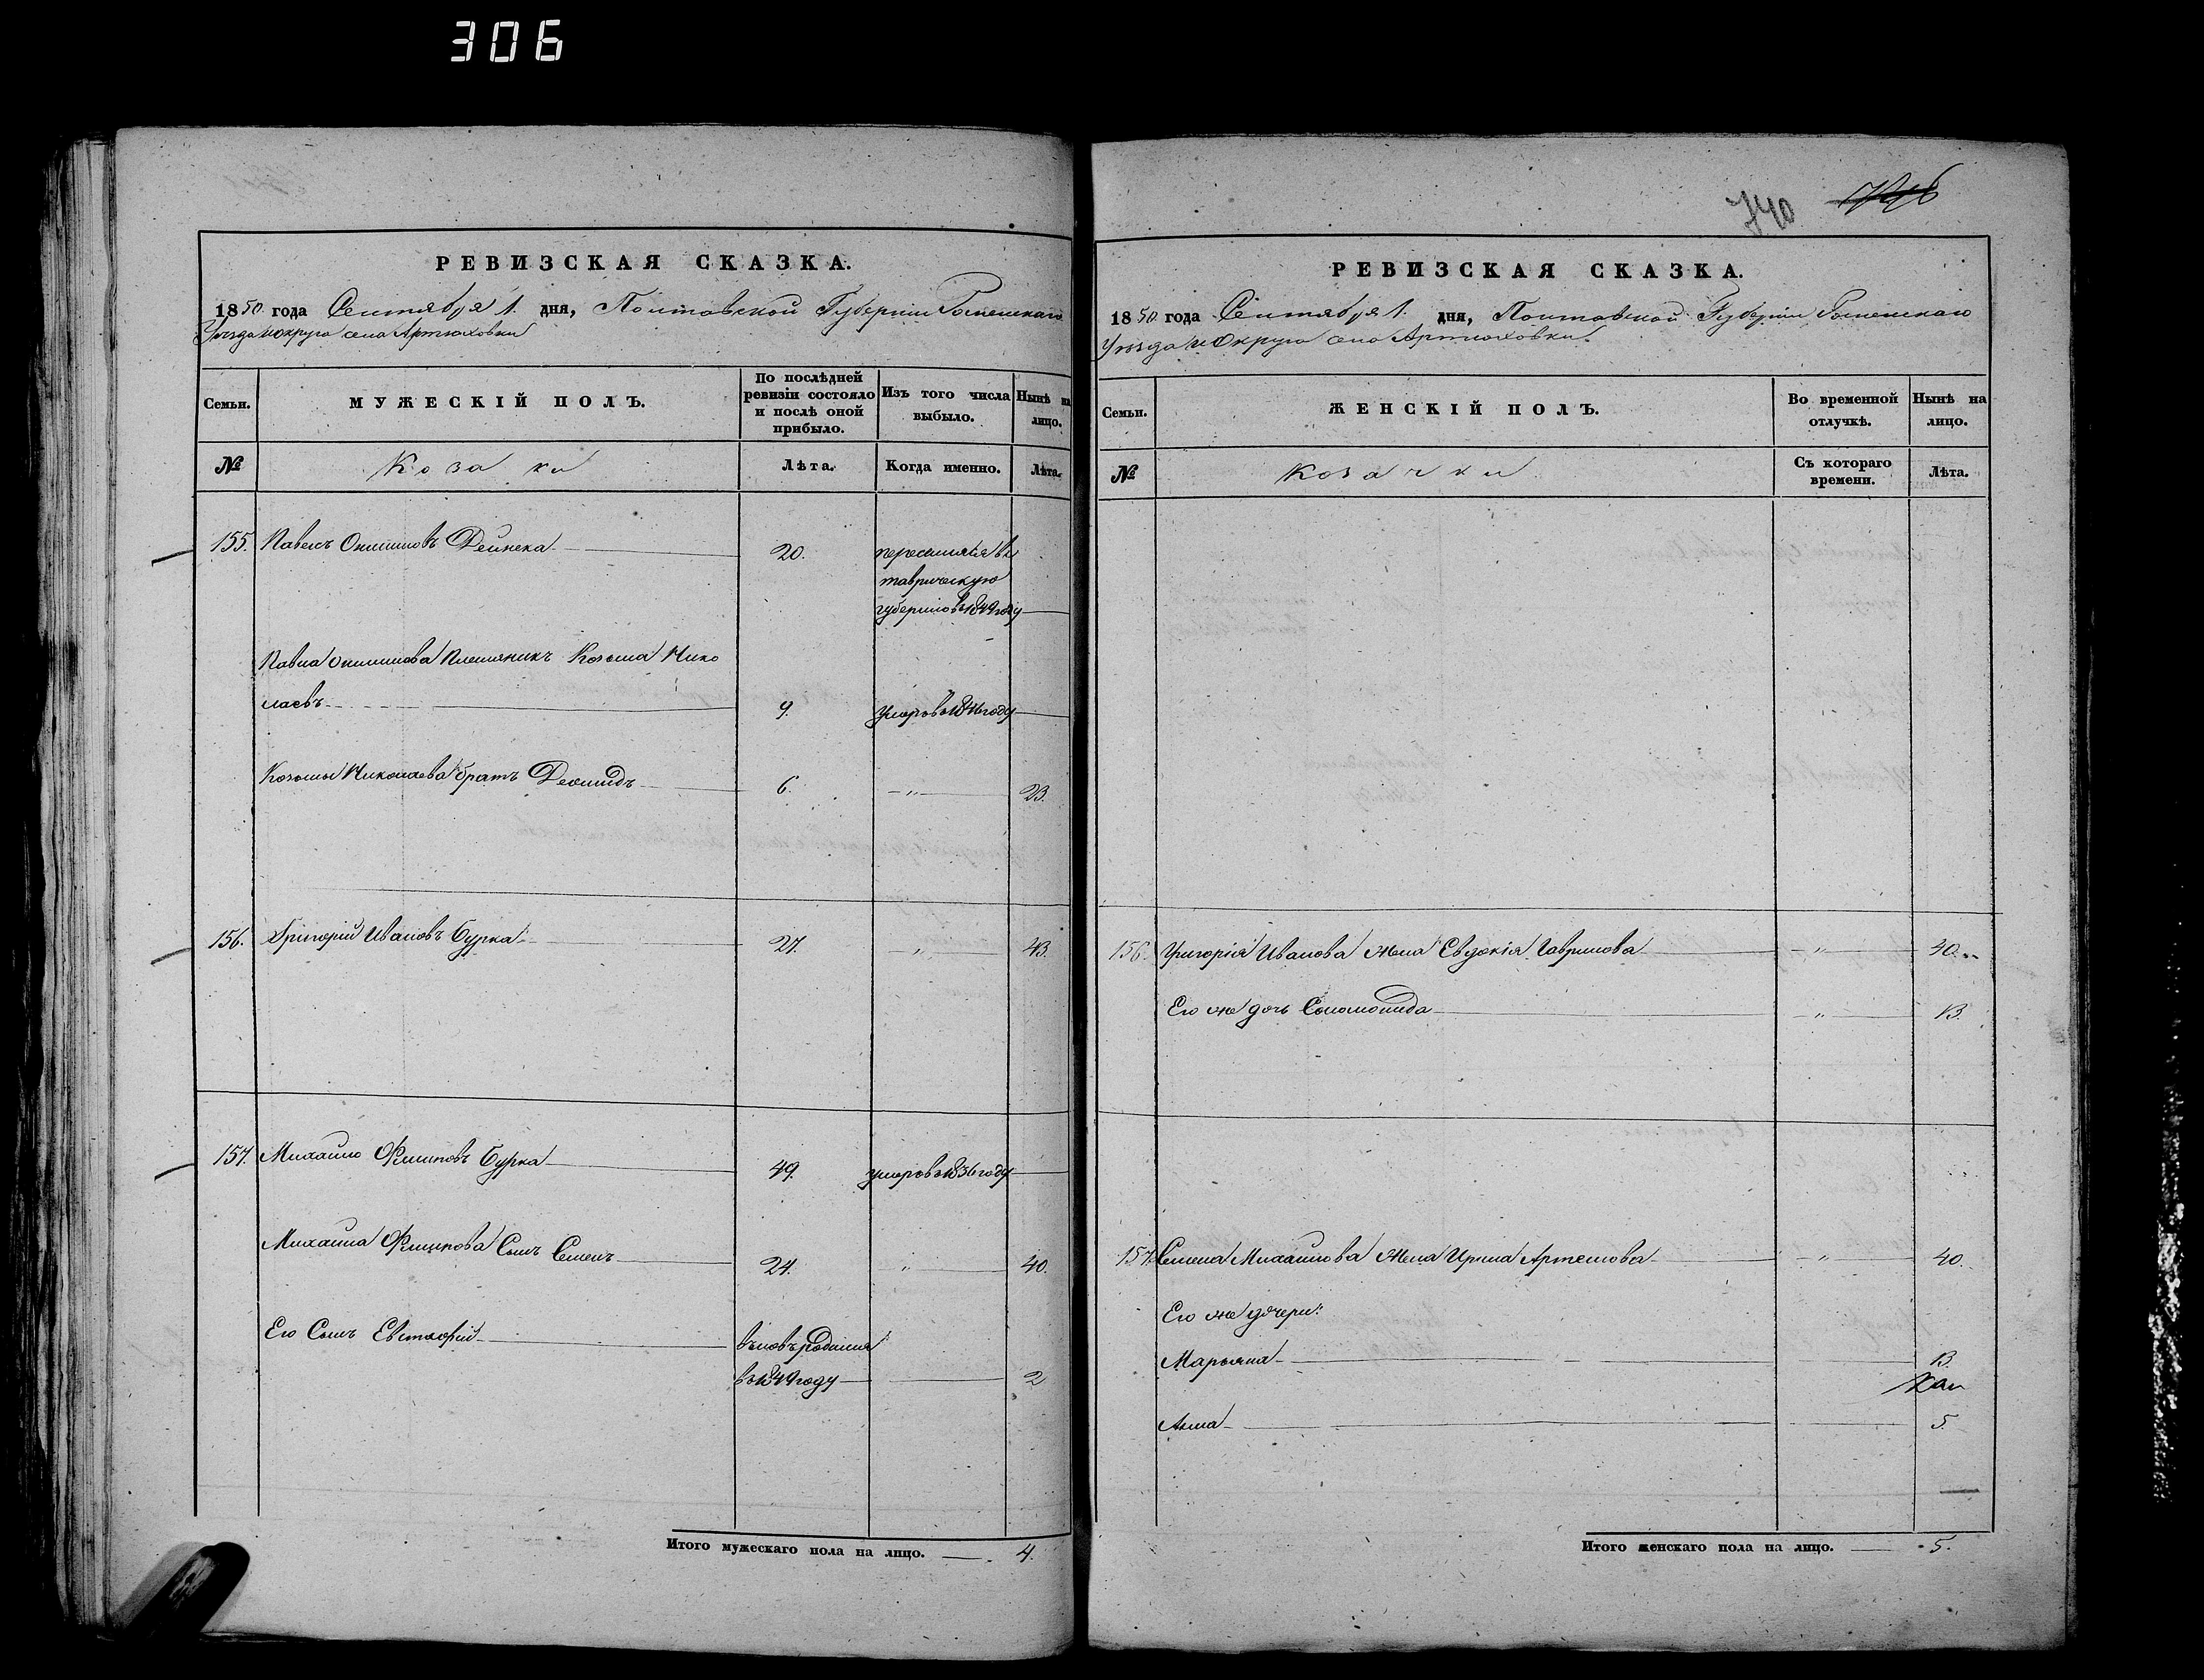 306
РЕВИЗСКАЯ СКАЗКА.
1850 года Сентября 1. дня, Полтавской Губернии Роменскаго
Уѣзда и округа села Артюховки
Семьи.
МУЖЕСКІЙ ПОЛЪ.
По послѣдней ревизіи состояло и послѣ оной прибыло.
Изъ того числа выбыло.
Нынѣ на лицо.
№
Козаки
Лѣта.
Когда именно.
Лѣта.
155. Павелъ Онишковъ Дейнека 20. переселился въ
таврическую
губернію въ 1849 году
Павла Онишкова Племяникъ Козьма Нико
лаевъ 9. умеръ въ 1846 году
Козьмы Николаева братъ Деомидъ 6. -"- 23.
156. Григорій Ивановъ Бурка 27. " 43.
157. Михайло Филиповъ Бурка 49. умеръ въ 1836 году
Михайла Филипова Сынъ Семенъ 24. " 40.
Его Сынъ Евстафій вновь родился
въ 1849 году 2
Итого мужескаго пола на лицо. 4.
740 
РЕВИЗСКАЯ СКАЗКА.
1850 года Сентября 1. дня, Полтавской Губерніи Роменскаго
Уѣзда и Округа села Артюховки.
Семьи.
ЖЕНСКІЙ ПОЛЪ.
Во временной отлучкѣ.
Нынѣ на лицо.
№
Козачки
Съ котораго времени.
Лѣта.
156. Григорія Иванова Жена Евдокія Гаврилова -"- 40.
Его же дочь Соломонида -"- 13.
157. Семена Михайлова Жена Ирина Артемова -"- 40.
Его же дочери:
Марьяна 13.
Анна 5.
Итого женскаго пола на лицо. 5.